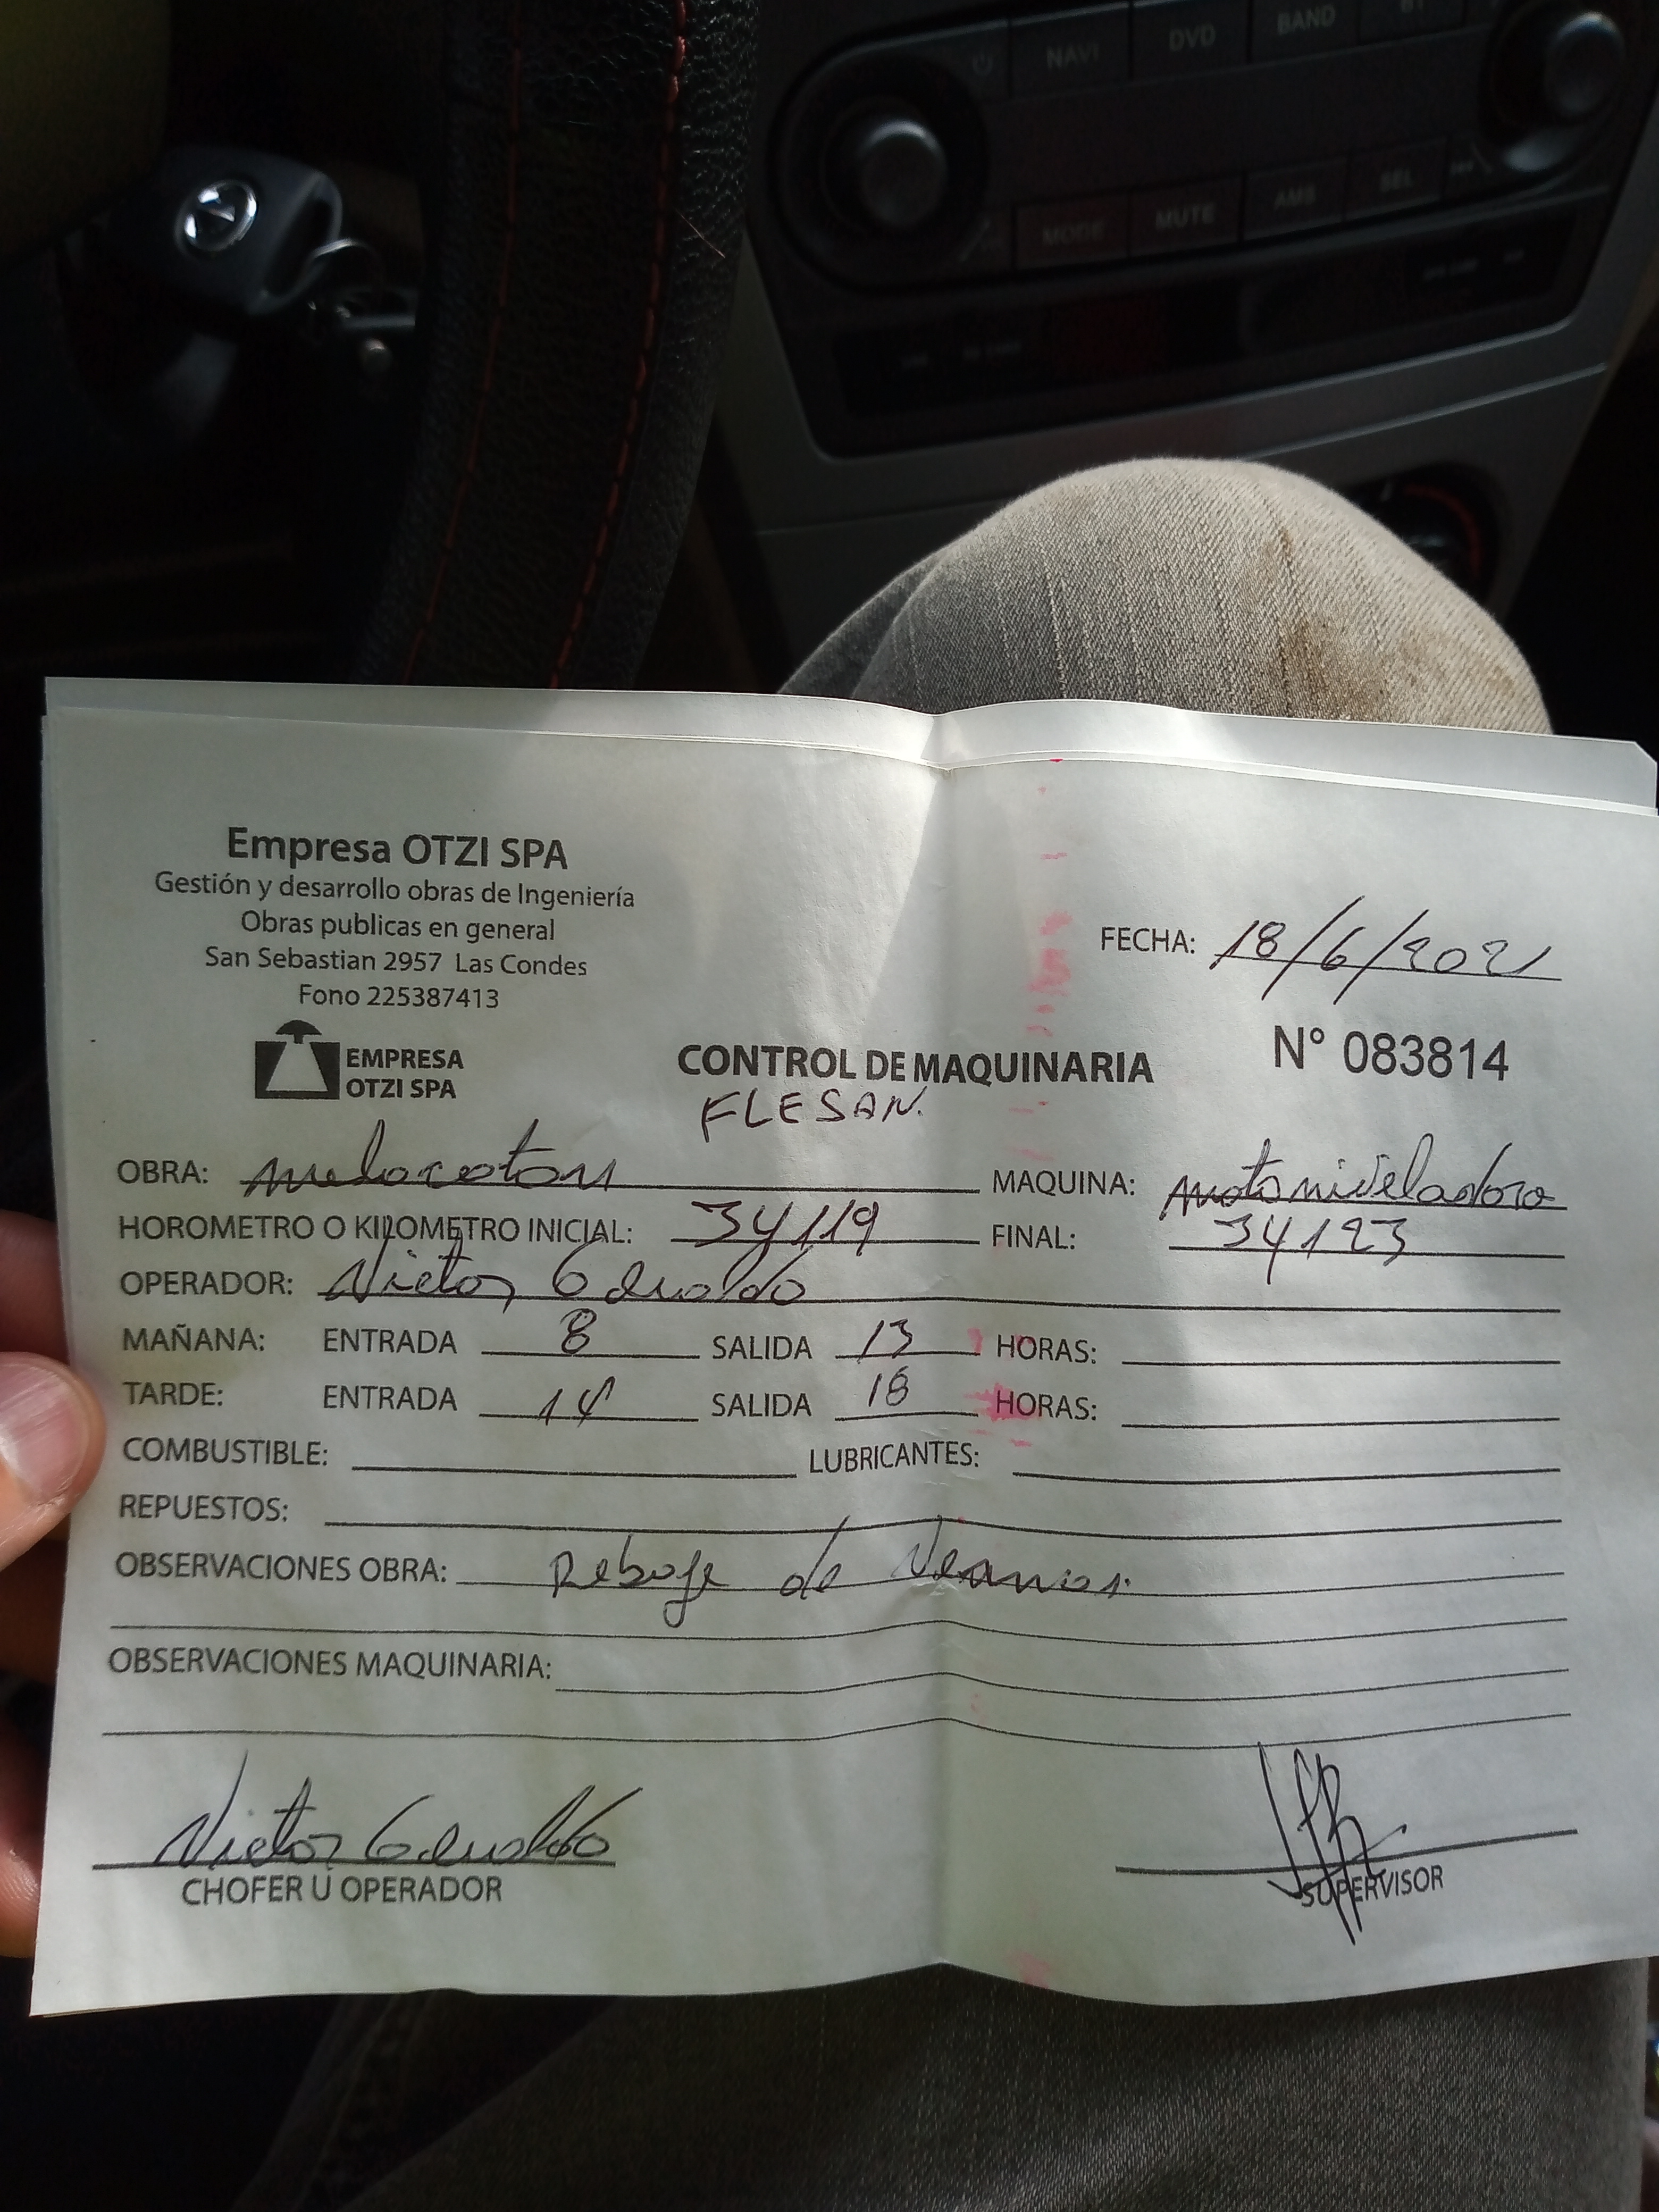 NAVI DVD BAND
MODE MUTE AMS SEL
Empresa OTZI SPA
Gestión y desarrollo obras de Ingeniería
Obras publicas en general
San Sebastian 2957 Las Condes
Fono 225387413
EMPRESA
OTZI SPA
FECHA: 18/6/2021
N° 083814
CONTROL DE MAQUINARIA
FLESAN.
OBRA: melocoton MAQUINA: motoniveladora
HOROMETRO O KILOMETRO INICIAL: 34119 FINAL: 34123
OPERADOR: Victor
MAÑANA: ENTRADA 8 SALIDA 13 HORAS:
TARDE: ENTRADA 14 SALIDA 18 HORAS:
COMBUSTIBLE: LUBRICANTES:
REPUESTOS:
OBSERVACIONES OBRA: Rebaje de
OBSERVACIONES MAQUINARIA:
Victor
CHOFER U OPERADOR
SUPERVISOR